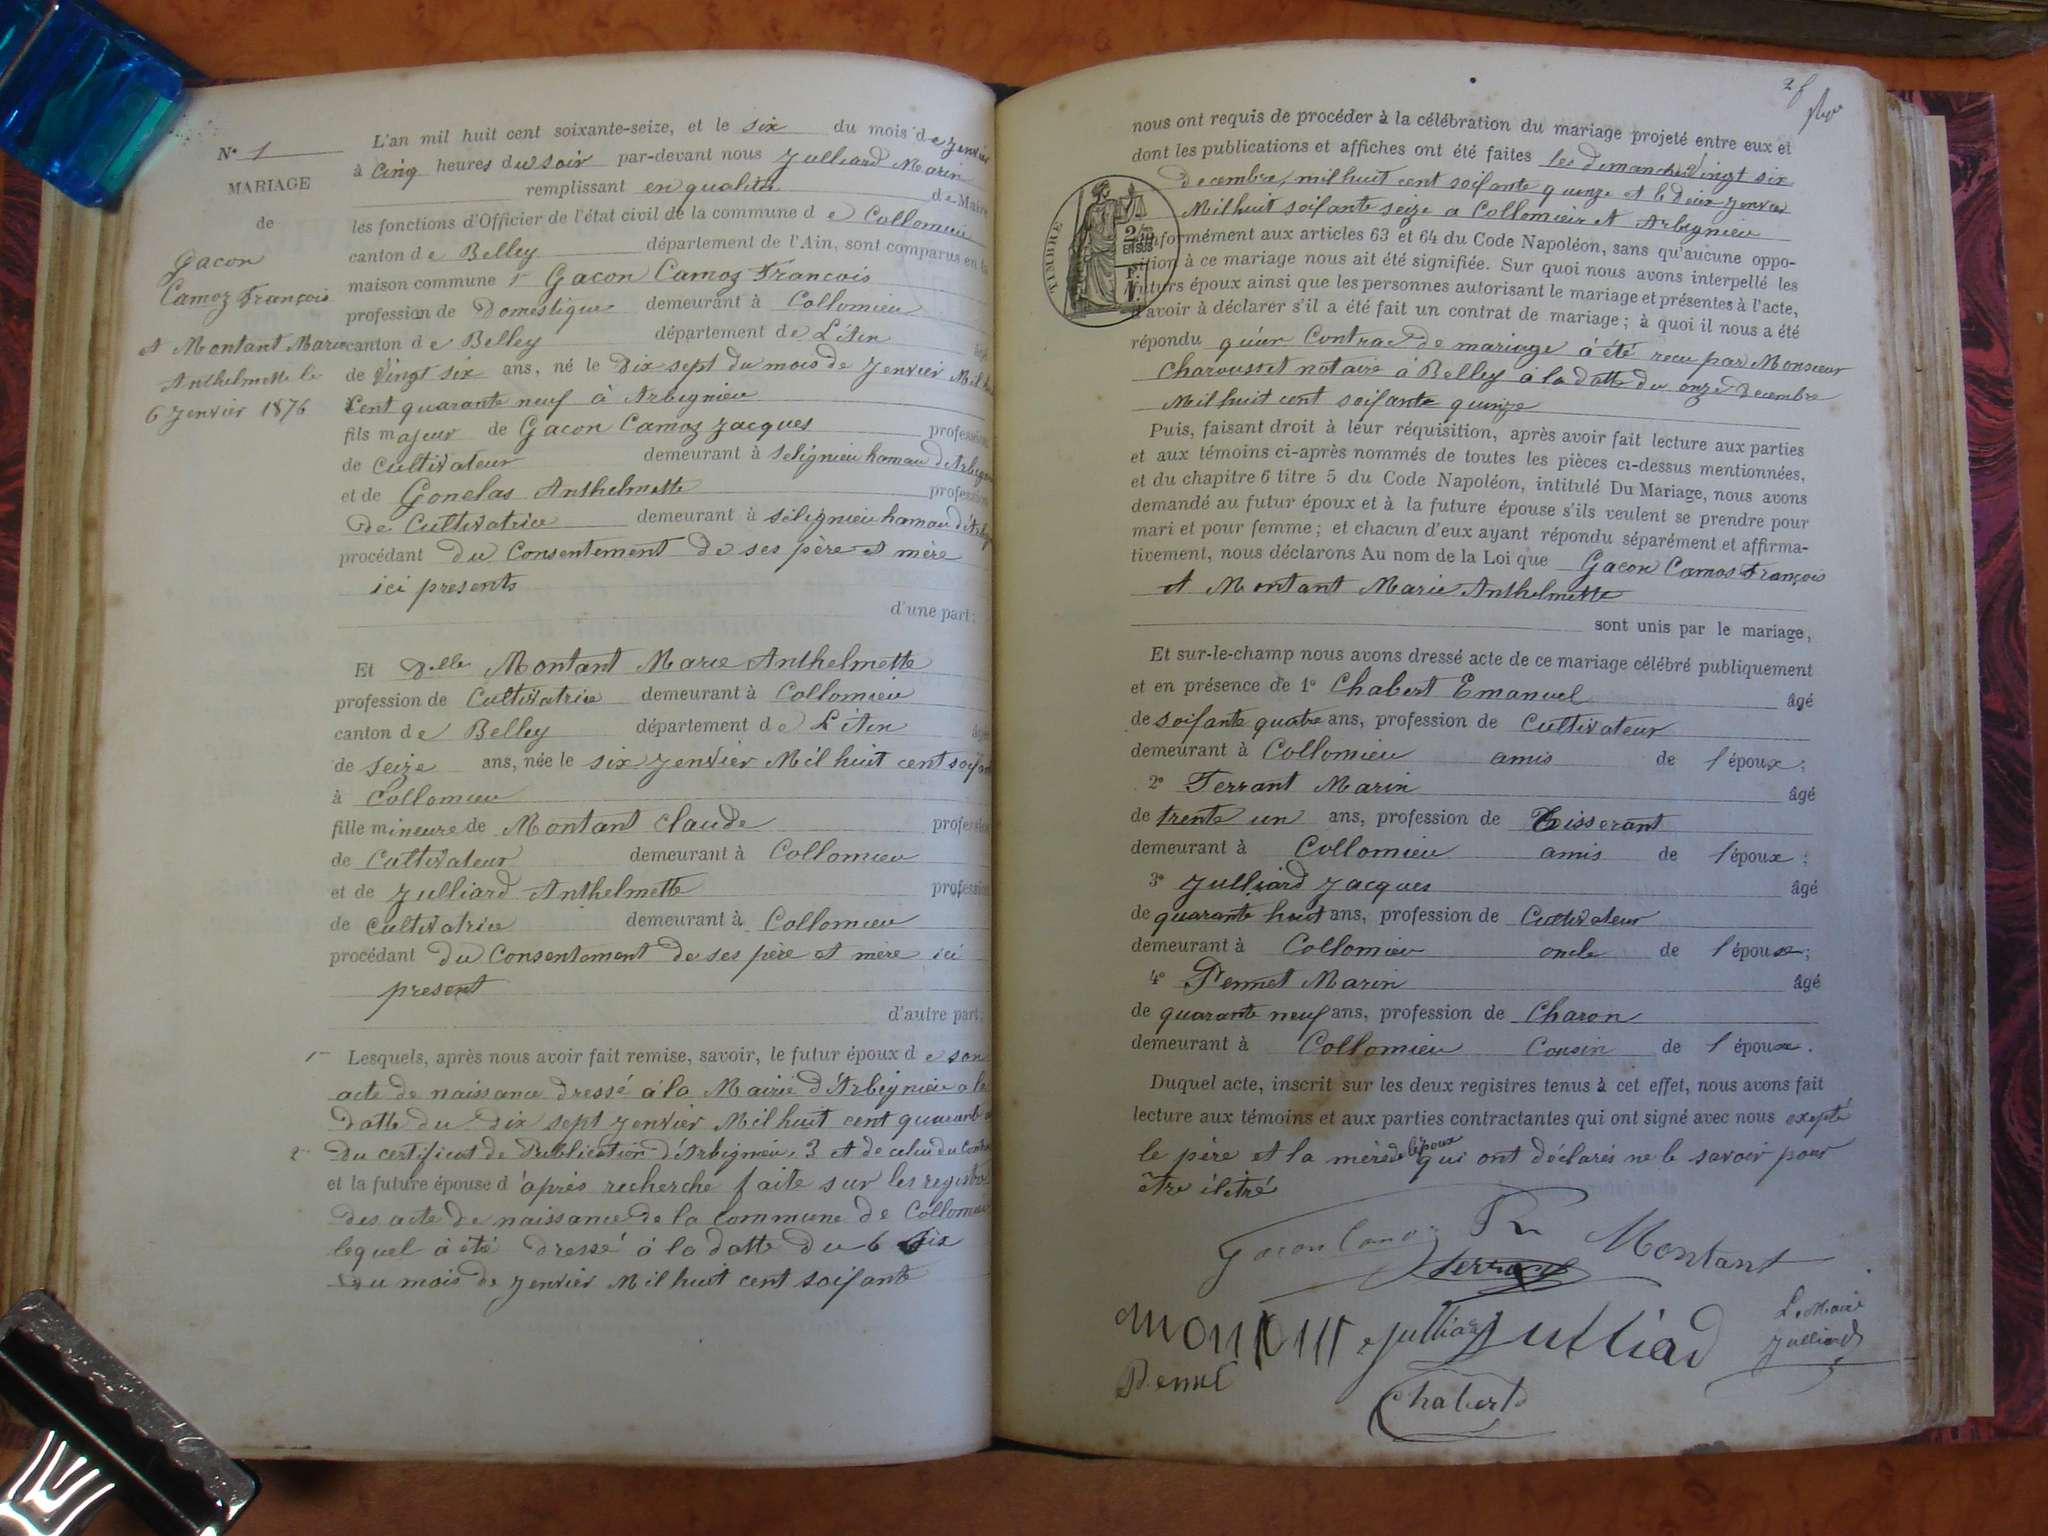 N° 1
MARIAGE
de
Gacon
Camoz François
et Montant Marie
Anthelmette le
6 Jenvier 1876
L'an mil huit cent soixante-seize, et le six du mois de Jenvier
à Cinq heures du soir par-devant nous Julliard Marin
remplissant en qualité de Maire
les fonctions d'Officier de l'état civil de la commune de Collomieu
canton de Belley département de l'Ain, sont comparus en la
maison commune 1° Gacon Camoz Francois
profession de Domestique demeurant à Collomieu
canton de Belley département de L'Ain âgé
de Vingt six ans, né le Dix sept du mois de Jenvier Mil huit
Cent quarante neuf à Arbignieu
fils majeur de Gacon Camoz Jacques profession
de Cultivateur demeurant à Sélignieu hamau d'Arbignieu
et de Gonelas Anthelmette profession
de Cultivatrice demeurant à Sélignieu hamau d'Arbign
procédant du Consentement de ses père et mère
ici presents
d'une part;
Et Delle Montant Marie Anthelmette
profession de Cultivatrice demeurant à Collomieu
canton de Belley département de L'Ain âgée
de Seize ans, née le six Jenvier Mil huit cent soifante
à Collomieu
fille mineure de Montant Claude profession
de Cultivateur demeurant à Collomieu
et de Julliard Anthelmette profession
de Cultivatrice demeurant à Collomieu
procédant du Consentement de ses père et mère ici
présent
d'autre part;
1° Lesquels, après nous avoir fait remise, savoir, le futur époux de son
acte de naissance dressé à la Mairie d'Arbignieu a la
datte du dix sept Jenvier Mil huit cent quarante
2° Du certificat de Publication d'Arbignieu, 3 et de celui du Contra
et la future épouse d'après recherche faite sur les registre
des acte de naissance de la Commune de Collomieu
lequel à été dressé à la datte du 6 Six
du mois de Jenvier Mil huit cent soifante
2f
nous ont requis de procéder à la célébration du mariage projeté entre eux et
dont les publications et affiches ont été faites les dimanches Vingt six
decembre, mil huit cent soifante quinze et le deux Jenvier
Mil huit soifante seize a Collomieu et Arbignieu
TIMBRE
2/10
EN SUS
1 F.
conformément aux articles 63 et 64 du Code Napoléon, sans qu'aucune oppo-
sition à ce mariage nous ait été signifiée. Sur quoi nous avons interpellé les
futurs époux ainsi que les personnes autorisant le mariage et présentes à l'acte,
d'avoir à déclarer s'il a été fait un contrat de mariage; à quoi il nous a été
répondu qu'un Contrac de mariage à été recu par Monsieur
Charousset notaire à Belley à la datte du onze Decembre
Mil huit cent soifante quinze
Puis, faisant droit à leur réquisition, après avoir fait lecture aux parties
et aux témoins ci-après nommés de toutes les pièces ci-dessus mentionnées,
et du chapitre 6 titre 5 du Code Napoléon, intitulé Du Mariage, nous avons
demandé au futur époux et à la future épouse s'ils veulent se prendre pour
mari et pour femme; et chacun d'eux ayant répondu séparément et affirma-
tivement, nous déclarons Au nom de la Loi que Gacon Camos François
et Montant Marie Anthelmette
sont unis par le mariage,
Et sur-le-champ nous avons dressé acte de ce mariage célébré publiquement
et en présence de 1° Chabert Emanuel âgé
de soifante quatre ans, profession de Cultivateur
demeurant à Collomieu amis de l'époux;
2° Ferrant Marin âgé
de trente un ans, profession de Tisserant
demeurant à Collomieu amis de l'époux;
3° Julliard Jacques âgé
de quarante huit ans, profession de Cultivateur
demeurant à Collomieu oncle de l'épouse;
4° Pennet Marin âgé
de quarante neuf ans, profession de Charon
demeurant à Collomieu Cousin de l'épouse.
Duquel acte, inscrit sur les deux registres tenus à cet effet, nous avons fait
lecture aux témoins et aux parties contractantes qui ont signé avec nous exepté
le père et la mère de l'époux qui ont déclarés ne le savoir pour
être iletré
Gacon Camoz Montant
Julliard Julliad
Le Maire
Julliard
Chabert